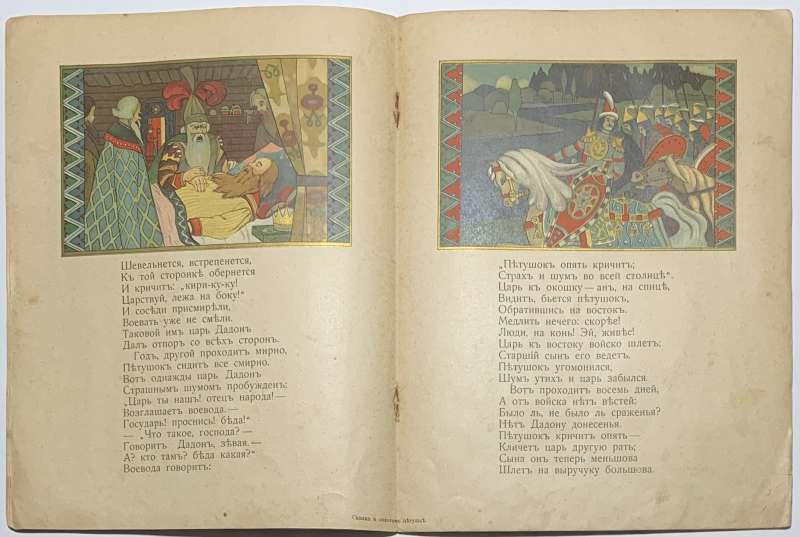 Шевельнется, встрепенется,
Къ той сторонкѣ обернется
И кричитъ: „кири-ку-ку!
Царствуй, лежа на боку!“
И сосѣди присмирѣли,
Воевать уже не смѣли.
Таковой имъ царь Дадонъ
Далъ отпоръ со всѣхъ сторонъ.
Годъ, другой проходитъ мирно,
Пѣтушокъ сидитъ все смирно.
Вотъ однажды царь Дадонъ
Страшнымъ шумомъ пробужденъ:
„Царь ты нашъ! отецъ народа!—
Возглашаетъ воевода.—
Государь! проснись! бѣда!“
— „Что такое, господа?—
Говоритъ Дадонъ, зѣвая.—
А? кто тамъ? бѣда какая?“
Воевода говоритъ:
„Пѣтушокъ опять кричитъ;
Страхъ и шумъ во всей столицѣ“.
Царь къ окошку — анъ, на спицѣ,
Видитъ, бьется пѣтушокъ,
Обратившись на востокъ.
Медлить нечего: скорѣе!
Люди, на конь! Эй, живѣе!
Царь къ востоку войско шлетъ;
Старшій сынъ его ведетъ.
Пѣтушокъ угомонился,
Шумъ утихъ и царь забылся.
Вотъ проходитъ восемь дней,
А отъ войска нѣтъ вѣстей:
Было ль, не было ль сраженья?
Нѣтъ Дадону донесенья.
Пѣтушокъ кричитъ опять —
Кличетъ царь другую рать;
Сына онъ теперь меньшова
Шлетъ на выручку большова.
Сказка о золотомъ пѣтушкѣ.